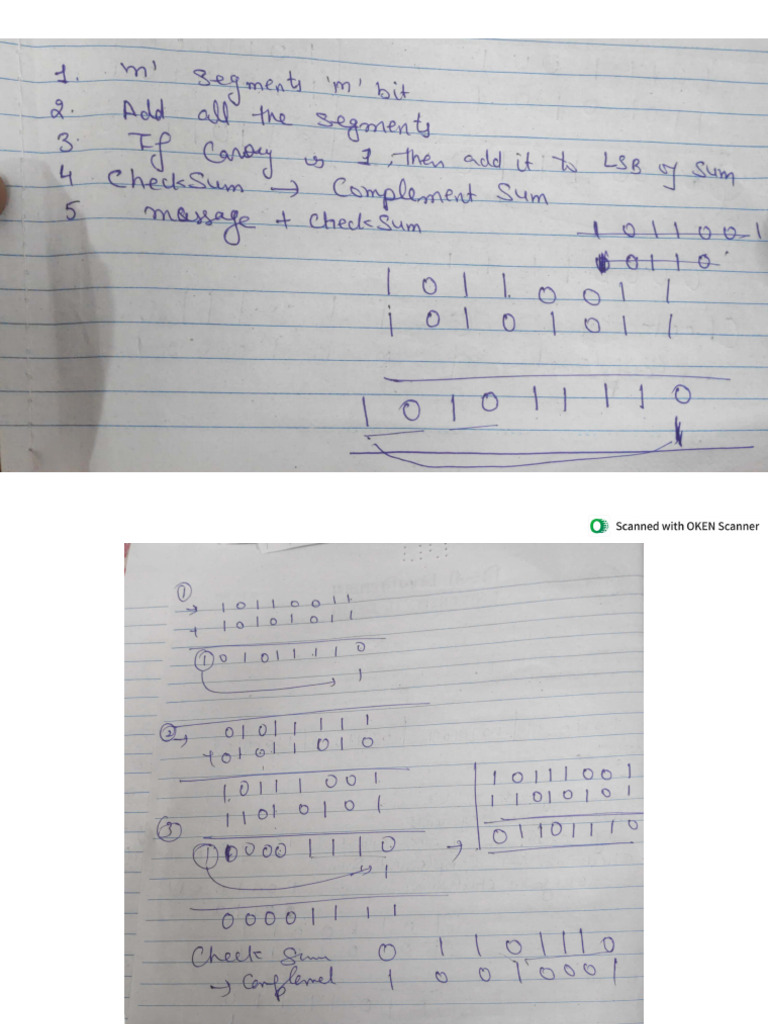 1. 'm' segments 'm' bit
2. Add all the segments
3. If Carray is 1, then add it to LSB of sum
4 CheckSum → Complement Sum
5 massage + checkSum
1 0 1 1 0 0 1
0 1 1 0
1 0 1 1 0 0 1 1
1 0 1 0 1 0 1 1
1 0 1 0 1 1 1 1 0
Scanned with OKEN Scanner
①
→ 1 0 1 1 0 0 1 1
+ 1 0 1 0 1 0 1 1
① 0 1 0 1 1 1 1 0
1
② → 0 1 0 1 1 1 1 1
+ 0 1 0 1 1 0 1 0
1 0 1 1 1 0 0 1
1 1 0 1 0 1 0 1
③
① 0 0 0 0 1 1 1 0
1
0 0 0 0 1 1 1 1
→ 1 0 1 1 1 0 0 1
1 1 0 1 0 1 0 1
0 1 1 0 1 1 1 0
Check Sum 0 1 1 0 1 1 1 0
→ Complemet 1 0 0 1 0 0 0 1